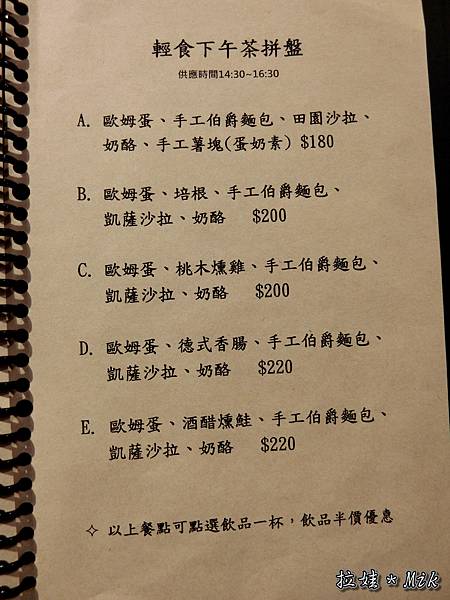 輕食下午茶拼盤
供應時間14:30~16:30
A. 歐姆蛋、手工伯爵麵包、田園沙拉、
奶酪、手工薯塊(蛋奶素) $180
B. 歐姆蛋、培根、手工伯爵麵包、
凱薩沙拉、奶酪 $200
C. 歐姆蛋、桃木燻雞、手工伯爵麵包、
凱薩沙拉、奶酪 $200
D. 歐姆蛋、德式香腸、手工伯爵麵包、
凱薩沙拉、奶酪 $220
E. 歐姆蛋、酒醋燻鮭、手工伯爵麵包、
凱薩沙拉、奶酪 $220
✧ 以上餐點可點選飲品一杯，飲品半價優惠
拉媄*Mik